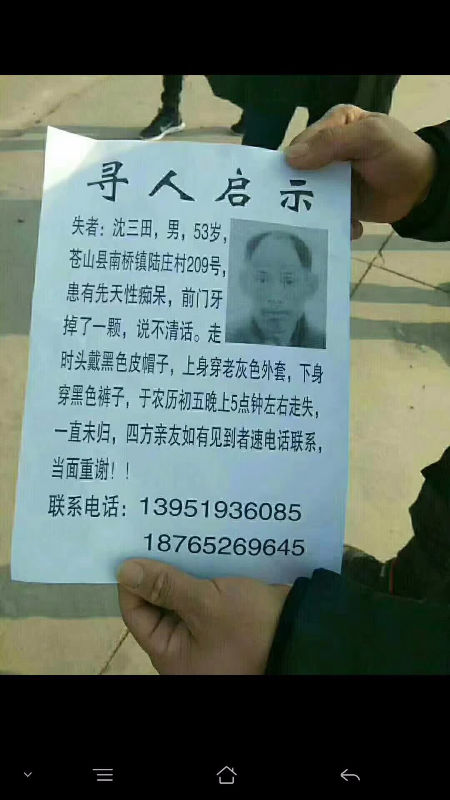 寻人启示
失者：沈三田，男，53岁，
苍山县南桥镇陆庄村209号，
患有先天性痴呆，前门牙
掉了一颗，说不清话。走
时头戴黑色皮帽子，上身穿老灰色外套，下身
穿黑色裤子，于农历初五晚上5点钟左右走失，
一直未归，四方亲友如有见到者速电话联系，
当面重谢！！
联系电话：13951936085
18765269645